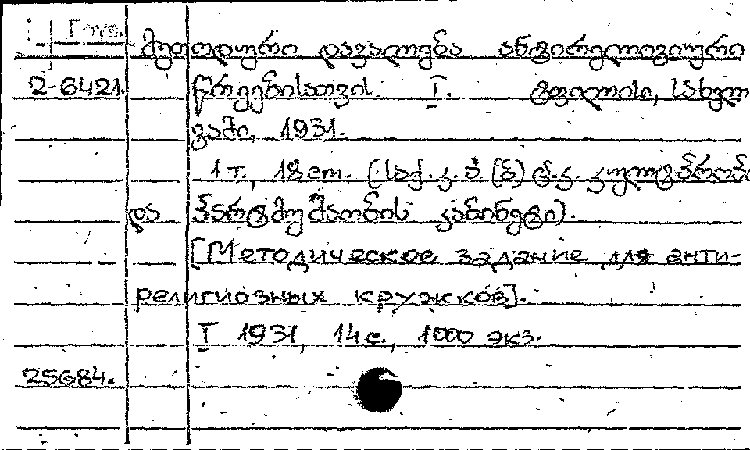 მეთოდური დავალება ანტირელიგიური
2-6421. წრეებისათვის. I. ტფილისი, სახელ
გამი, 1931.
1 т., 18 cm. (საქ. კ. პ. (ბ) ც. კ. კულტპროპ
და პარტმუშაობის კაბინეტი).
[Методическое задание для анти-
религиозных кружков].
I 1931, 14 с., 1000 экз.
25684.